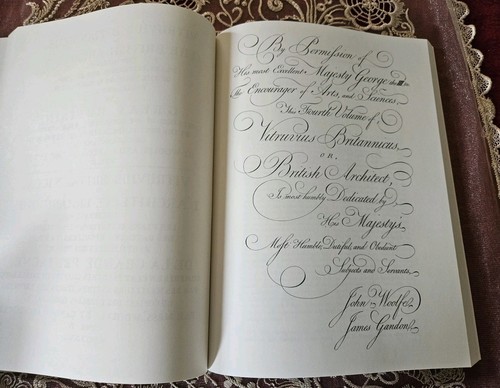 By Permission of
His most Excellent Majesty George the III
the Encourager of Arts, and Sciences,
This Fourth Volume of
Vitruvius Britannicus,
OR,
British Architect,
Is most humbly Dedicated, by
His Majesty's
Most Humble, Dutiful, and Obedient
Subjects and Servants,
John Woolfe,
James Gandon.